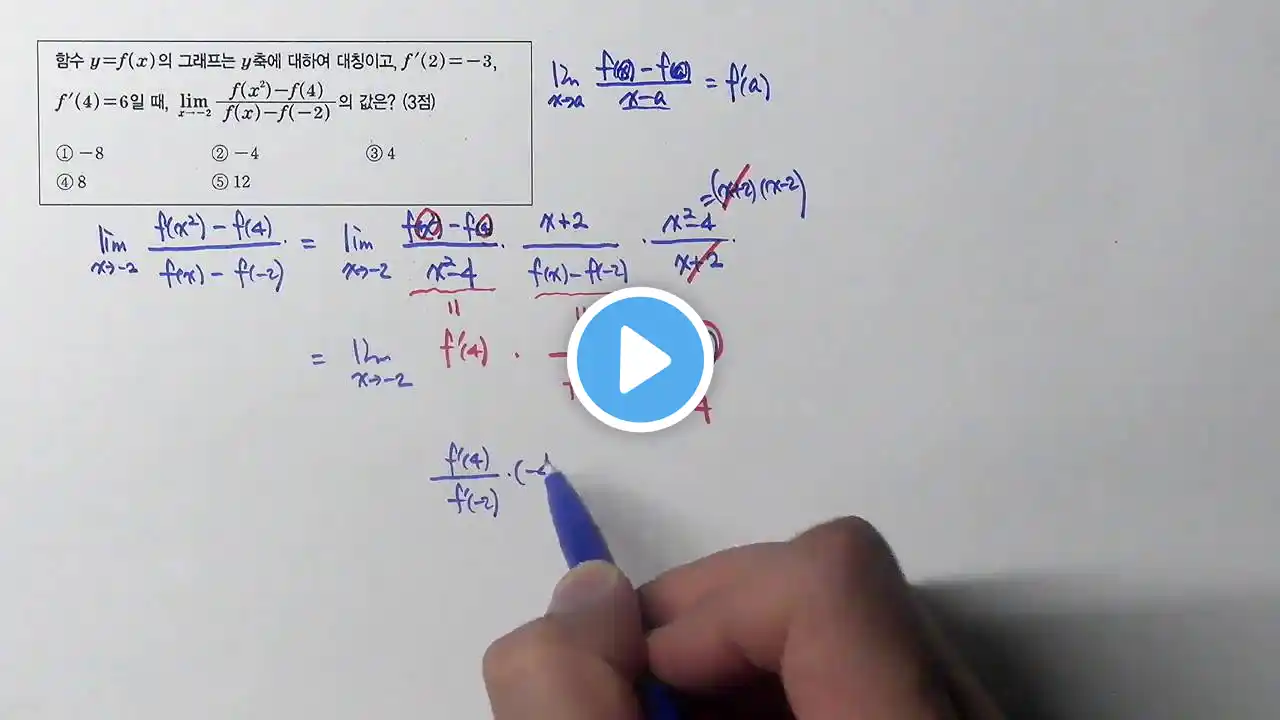 함수 y=f(x)의 그래프는 y축에 대하여 대칭이고, f′(2)=−3,
f′(4)=6일 때, lim x→−2 (f(x²)−f(4))/(f(x)−f(−2)) 의 값은? (3점)
① −8 ② −4 ③ 4
④ 8 ⑤ 12
lim x→a (f(x)−f(a))/(x−a) = f′(a)
=(x+2)(x−2)
lim x→−2 (f(x²)−f(4))/(f(x)−f(−2)) · = lim x→−2 (f(x²)−f(4))/(x²−4) · (x+2)/(f(x)−f(−2)) · (x²−4)/(x+2) ·
= lim x→−2 f′(4) ·
f′(4)/f′(−2) · (−4